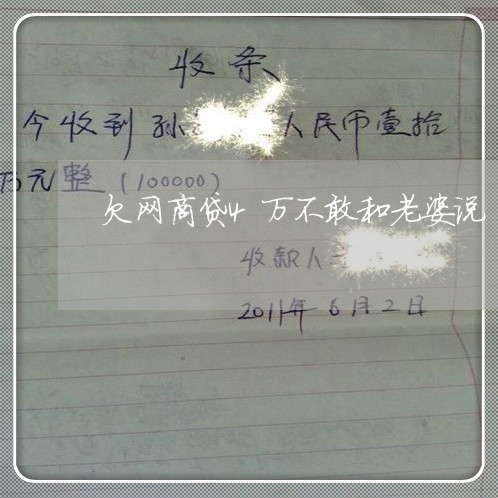 收条
今收到孙 人民币壹拾
万元整(100000)
欠网商贷4万不敢和老婆说
收款人
2011年6月2日